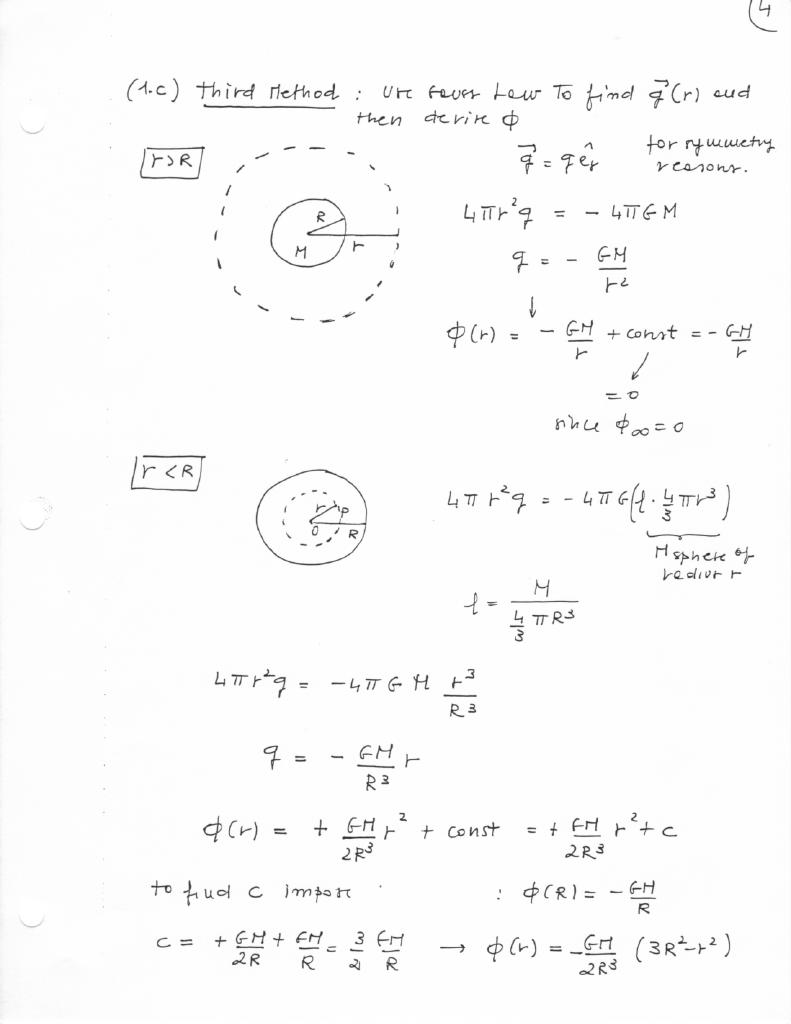 4
(1.c) Third Method : Use Gauss Law To find g⃗(r) and
then derive ϕ
r>R
g⃗ = g ê_r for symmetry
reasons.
R
M
r
4πr²g = - 4πGM
g = - GM/r²
↓
ϕ(r) = - GM/r + const = - GM/r
= 0
since ϕ∞ = 0
r<R
r P
O R
4πr²g = - 4πG(ρ · 4/3 πr³)
M sphere of
radius r
ρ = M / (4/3 πR³)
4πr²g = - 4πGM r³/R³
g = - GM/R³ r
ϕ(r) = + GM/2R³ r² + const = + GM/2R³ r² + c
to find c impose : ϕ(R) = - GM/R
c = + GM/2R + GM/R = 3/2 GM/R → ϕ(r) = - GM/2R³ (3R² - r²)